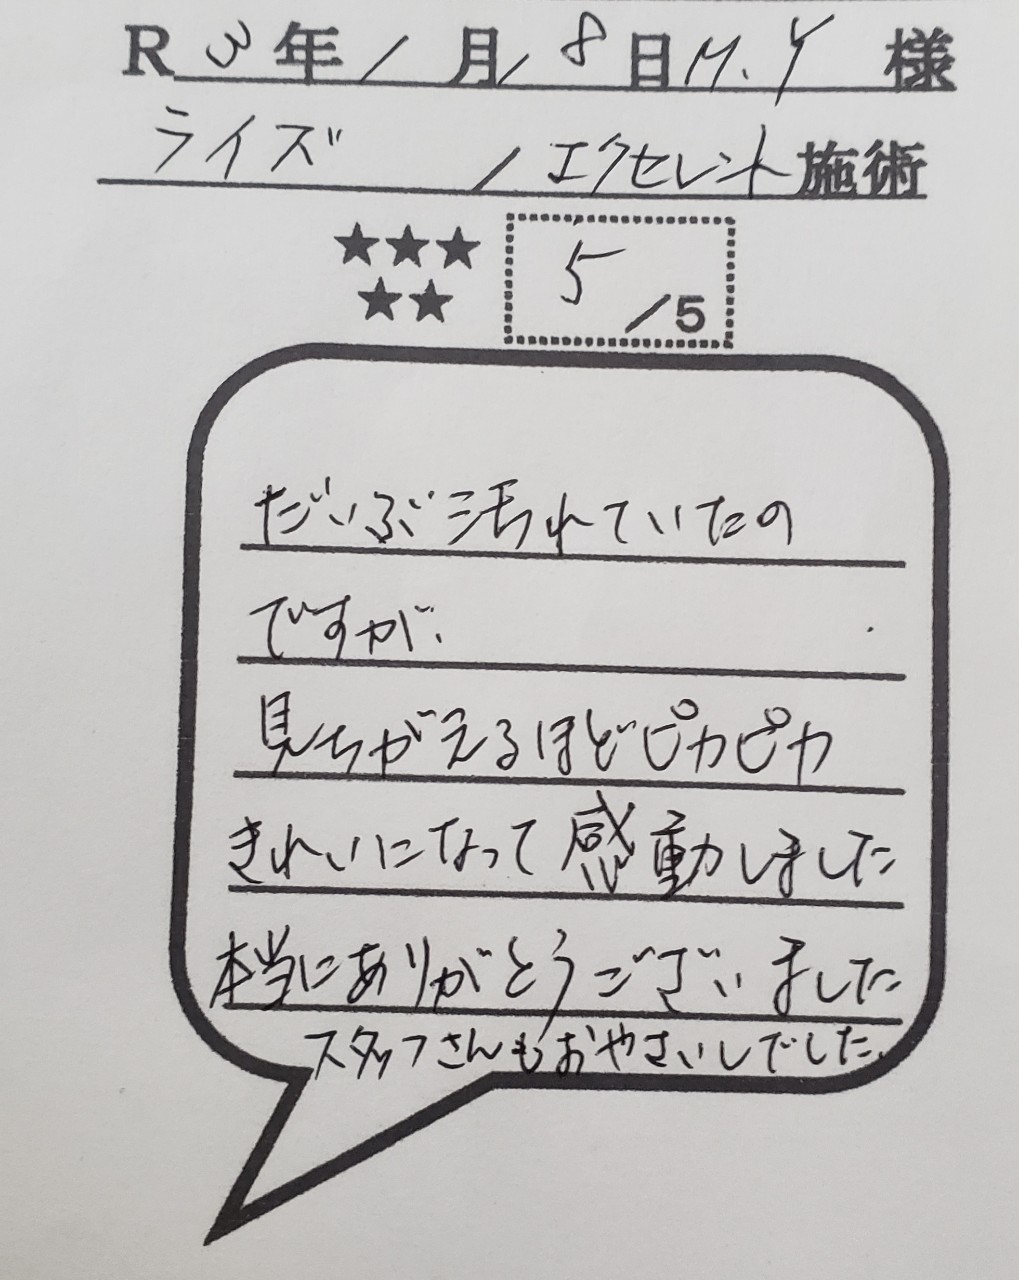 R 3年 1月 18日 M.Y 様
ライズ / エクセレント施術
★★★
★★
5/5
だいぶ汚れていたの
ですが、
見ちがえるほどピカピカ
きれいになって感動しました
本当にありがとうございました
スタッフさんもおやさいしでした。